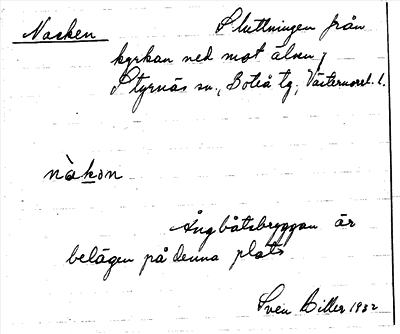 Nacken
Sluttningen från
kyrkan ned mot älven,
Styrnäs sn., Boteå tg, Västernorrl. l.
nàkon
Ångbåtsbryggan är
belägen på denna plats
Sven Biller 1932